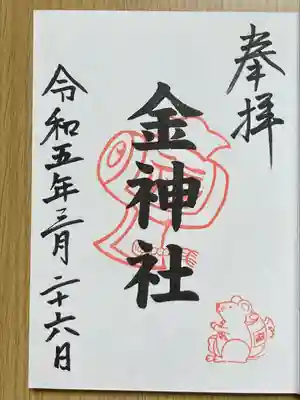 奉拝
金神社
令和五年二月二十六日